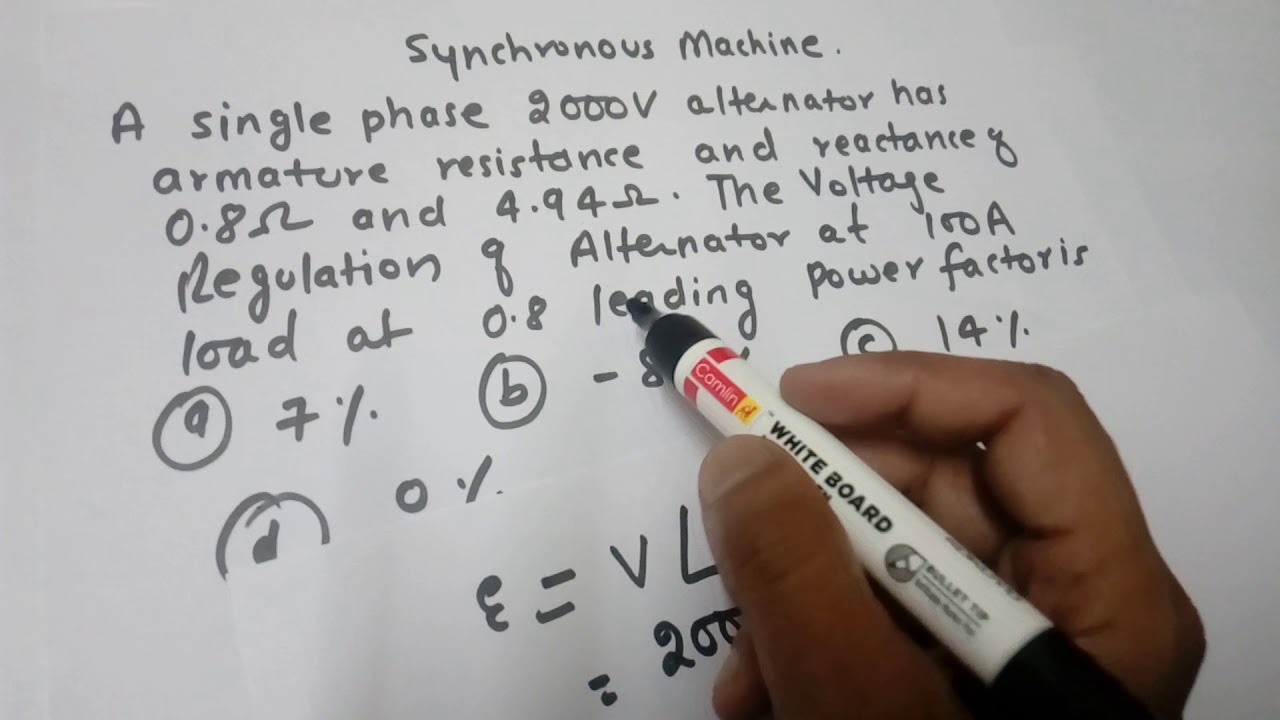 Synchronous Machine.
A single phase 2000V alternator has
armature resistance and reactance of
0.8Ω and 4.94Ω. The Voltage
Regulation of Alternator at 100A
load at 0.8 leading power factor is
(a) 7% (b) -8 (c) 14%
(d) 0%
E = V∠
= 200
Camlin
WHITE BOARD
BULLET TIP